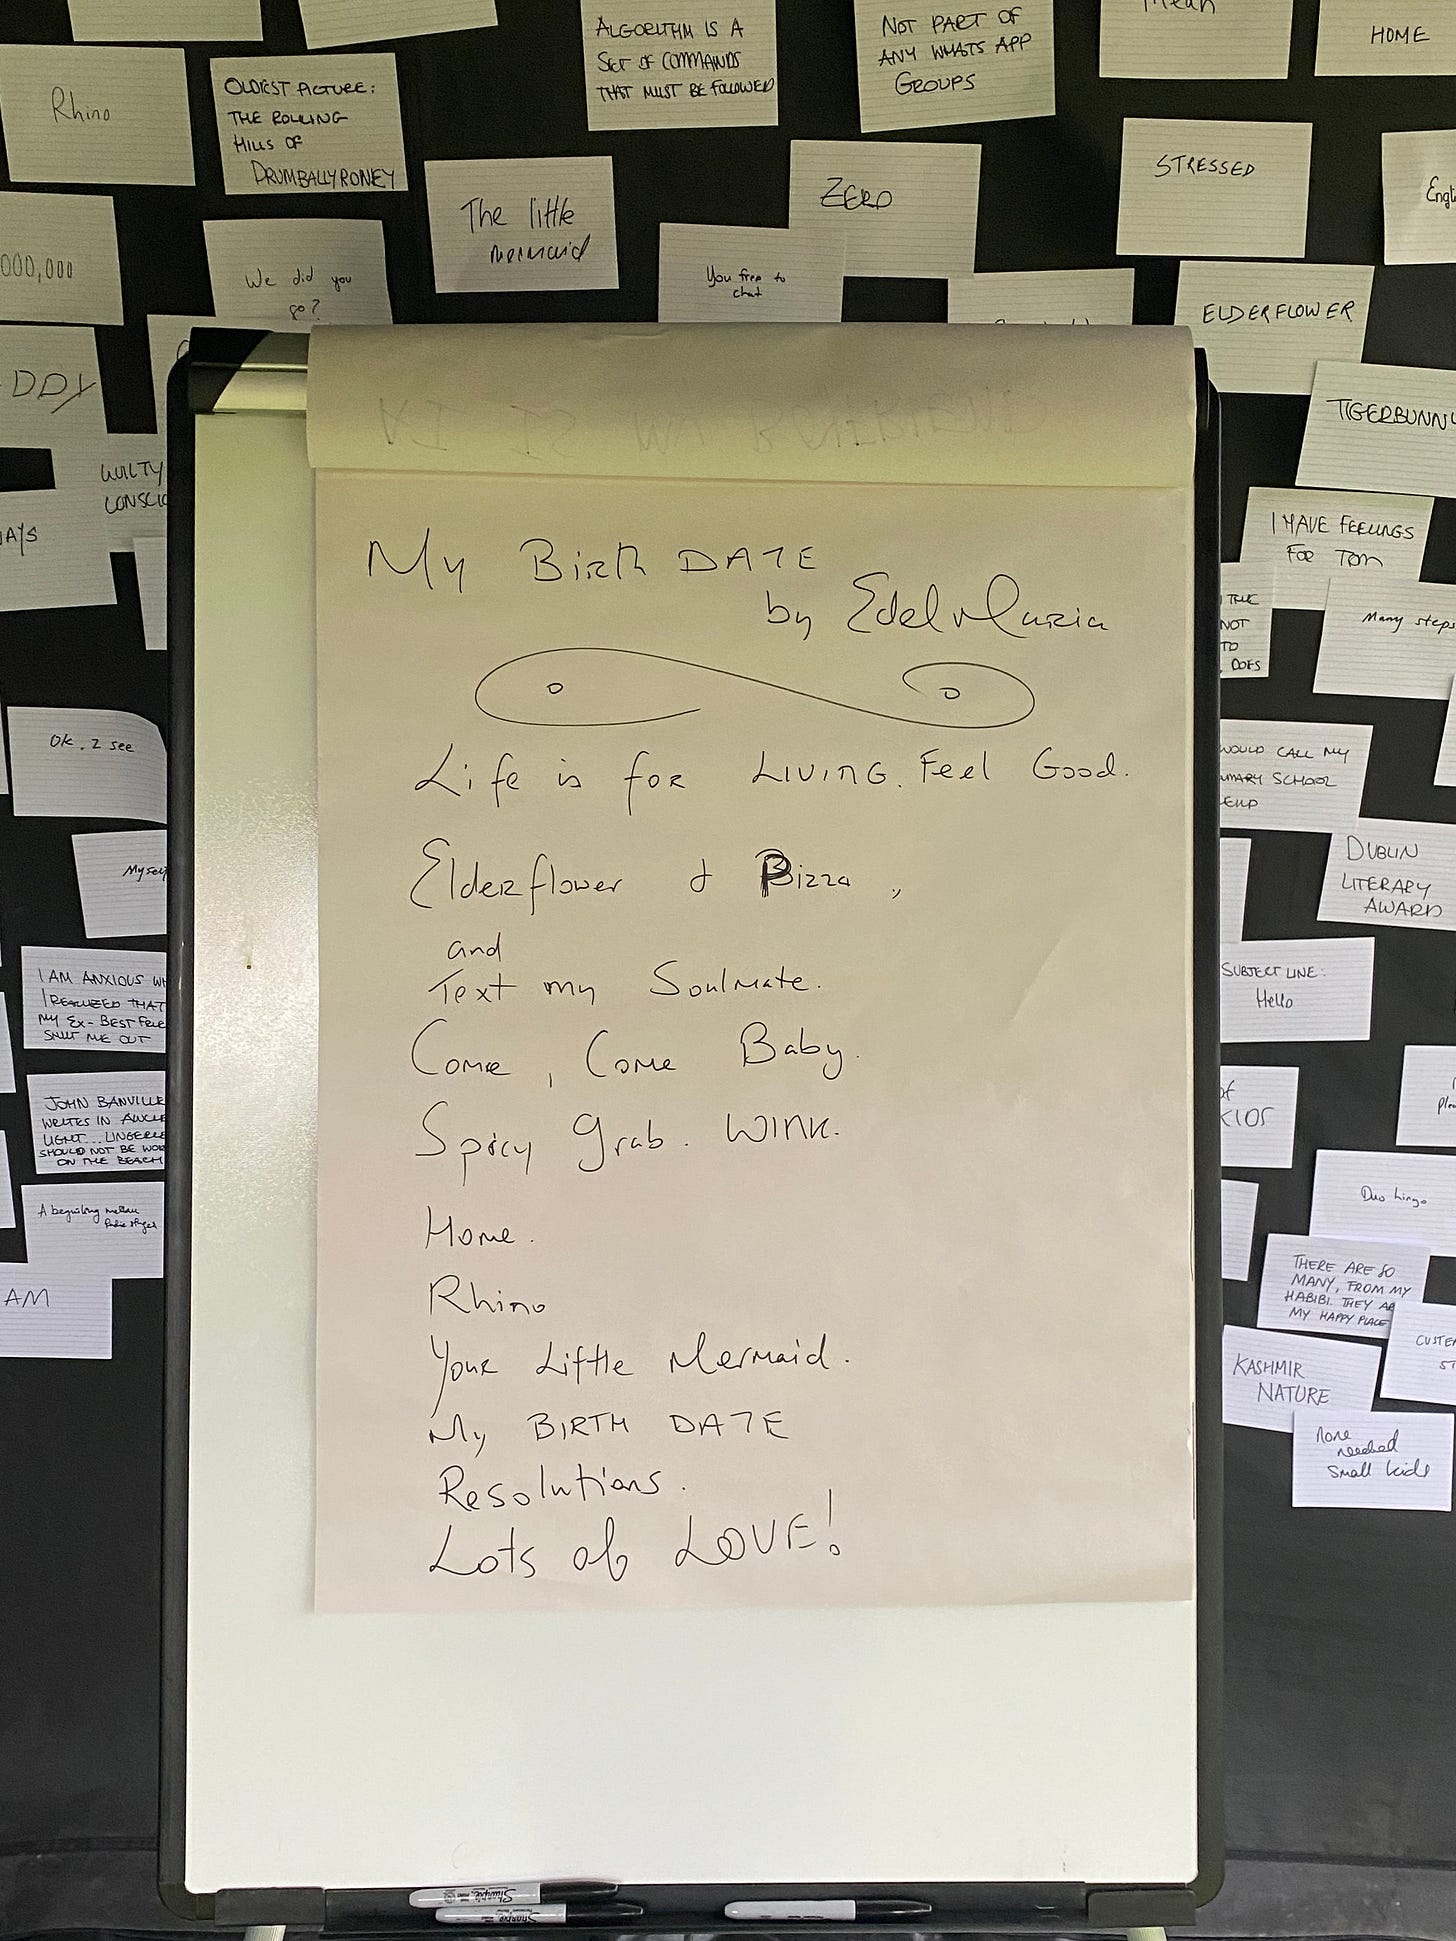 Mean
HOME
ALGORITHM IS A
SET OF COMMANDS
THAT MUST BE FOLLOWED
NOT PART OF
ANY WHATS APP
GROUPS
Rhino
OLDEST PICTURE:
THE ROLLING
HILLS OF
DRUMBALLYRONEY
The little
mermaid
ZERO
STRESSED
000,000
We did you
go?
You free to
chat
ELDERFLOWER
DDY
TIGERBUNNY
GUILTY
CONSCIO
AYS
I HAVE FEELINGS
FOR TOM
THE
NOT
TO
DOES
Many steps
My Birth DATE
by Edel Maria
Life is for LIVING. Feel Good.
Elderflower & Pizza,
and
Text my Soulmate.
Come, Come Baby.
Spicy Grab. WINK.
Home.
Rhino
Your Little Mermaid.
My BIRTH DATE
Resolutions.
Lots of LOVE!
Ok, I see
WOULD CALL MY
SCHOOL
Myself
DUBLIN
LITERARY
AWARD
I AM ANXIOUS WH
I REALIZED THAT
MY EX-BEST FRIE
SHUT ME OUT
SUBJECT LINE:
Hello
JOHN BANVILLE
WRITES IN
LIGHT... LINGERIE
SHOULD NOT BE WOR
ON THE BEACH
of
KIDS
A beguiling
AM
Duo lingo
THERE ARE SO
MANY, FROM MY
HABIBI. THEY AR
MY HAPPY PLACE
KASHMIR
NATURE
None
needed
small kids
Sharpie
Sharpie